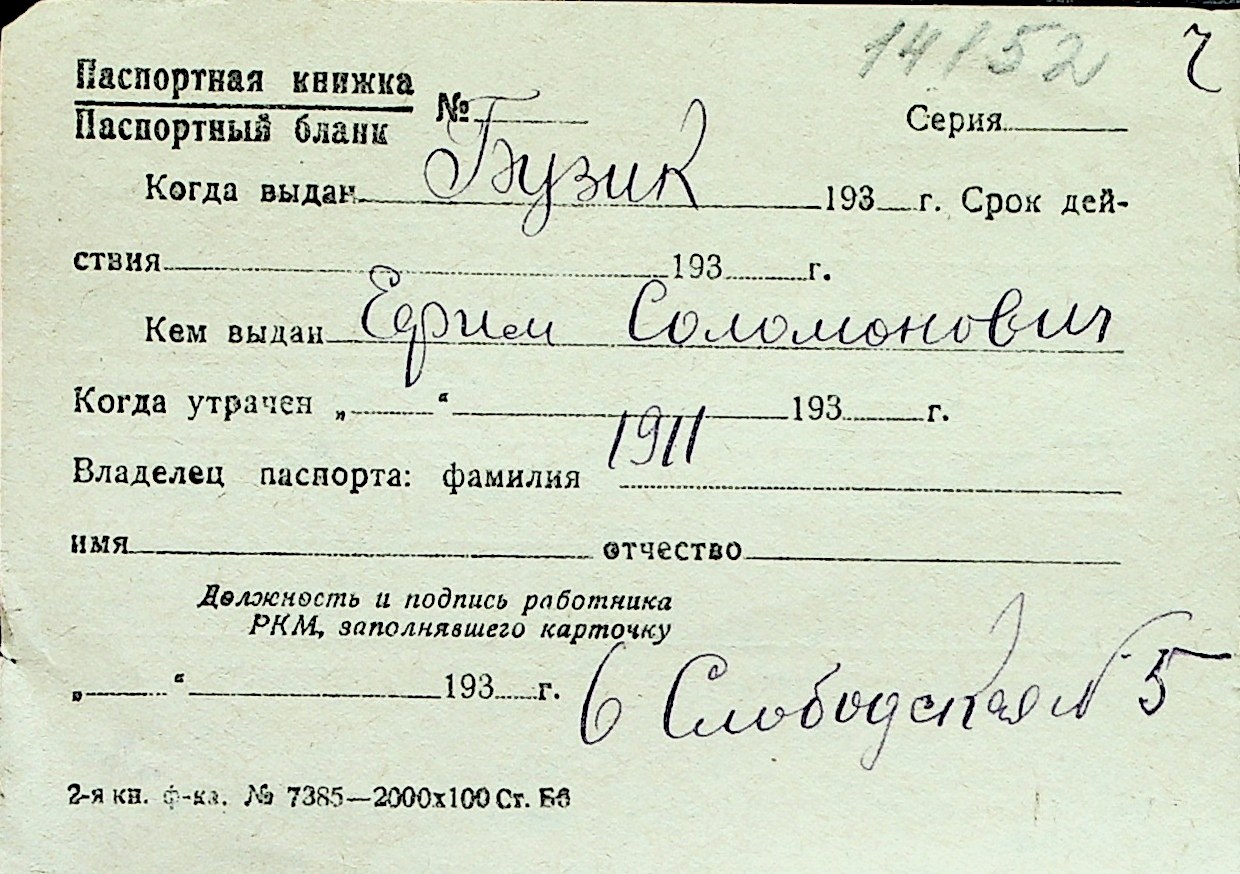 14152 ч
Паспортная книжка
Паспортный бланк
№ Серия
Бузик
Когда выдан 193 г. Срок дей-
ствия 193 г.
Ефрем Соломонович
Кем выдан
Когда утрачен „ “ 193 г.
1911
Владелец паспорта: фамилия
имя отчество
Должность и подпись работника
РКМ, заполнявшего карточку
„ “ 193 г.
6 Слободская № 5
2-я кн. ф-ка. № 7385—2000х100 Ст. Бб